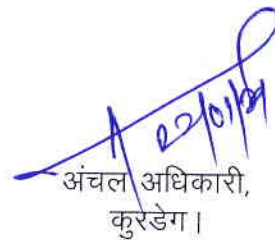 22/01/24
अंचल अधिकारी,
कुरडेग।